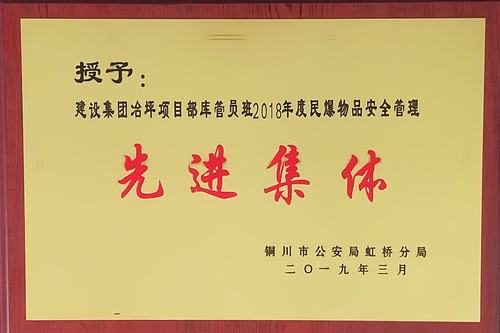 授予：
建设集团冶坪项目部库管员班2018年度民爆物品安全管理
先进集体
铜川市公安局虹桥分局
二〇一九年三月